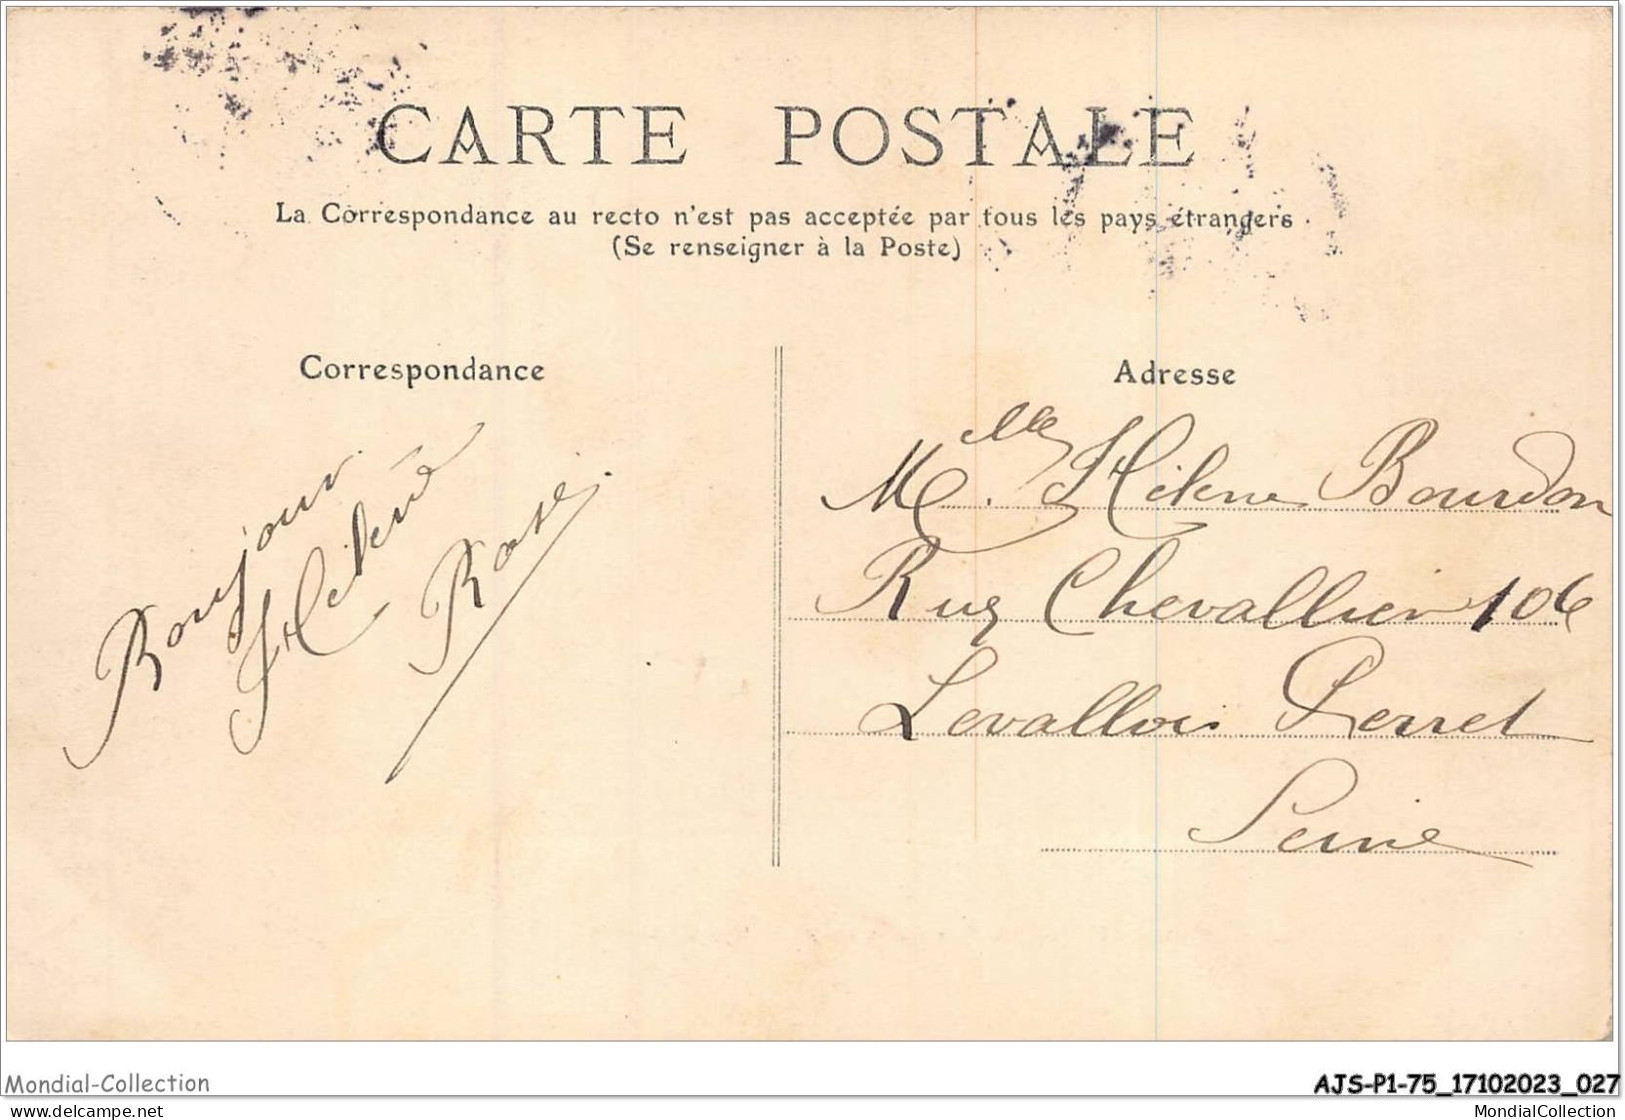 CARTE POSTALE
La Correspondance au recto n'est pas acceptée par tous les pays étrangers
(Se renseigner à la Poste)
Correspondance
Bonjour
Hélène
Rose.
Adresse
Mlle. Hélène Bourdon
Rue Chevallier 106
Levallois Perret
Seine
Mondial-Collection
AJS-P1-75_17102023_027
delcampe.net
MondialCollection